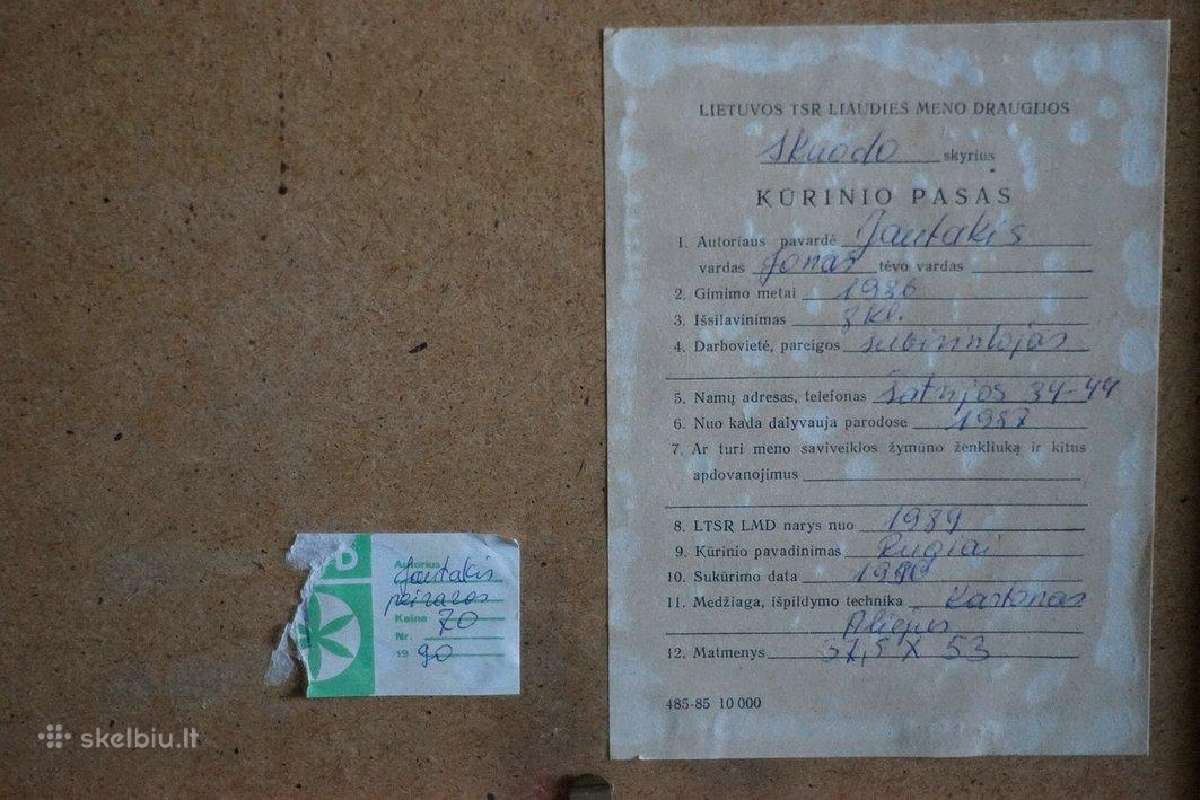 LIETUVOS TSR LIAUDIES MENO DRAUGIJOS
Skuodo skyrius
KŪRINIO PASAS
1. Autoriaus pavardė Jautakis
vardas Jonas tėvo vardas
2. Gimimo metai 1936
3. Išsilavinimas 8 kl.
4. Darbovietė, pareigos
5. Namų adresas, telefonas Šatrijos 34-44
6. Nuo kada dalyvauja parodose 1987
7. Ar turi meno saviveiklos žymūno ženkliuką ir kitus
apdovanojimus
8. LTSR LMD narys nuo 1989
9. Kūrinio pavadinimas Rugiai
10. Sukūrimo data 1990
11. Medžiaga, išpildymo technika Kartonas
Aliejus
12. Matmenys 37,5 X 53
485-85 10 000
D
Autorius
Jautakis
peizažas
Kaina 70
Nr.
19 90
skelbiu.lt